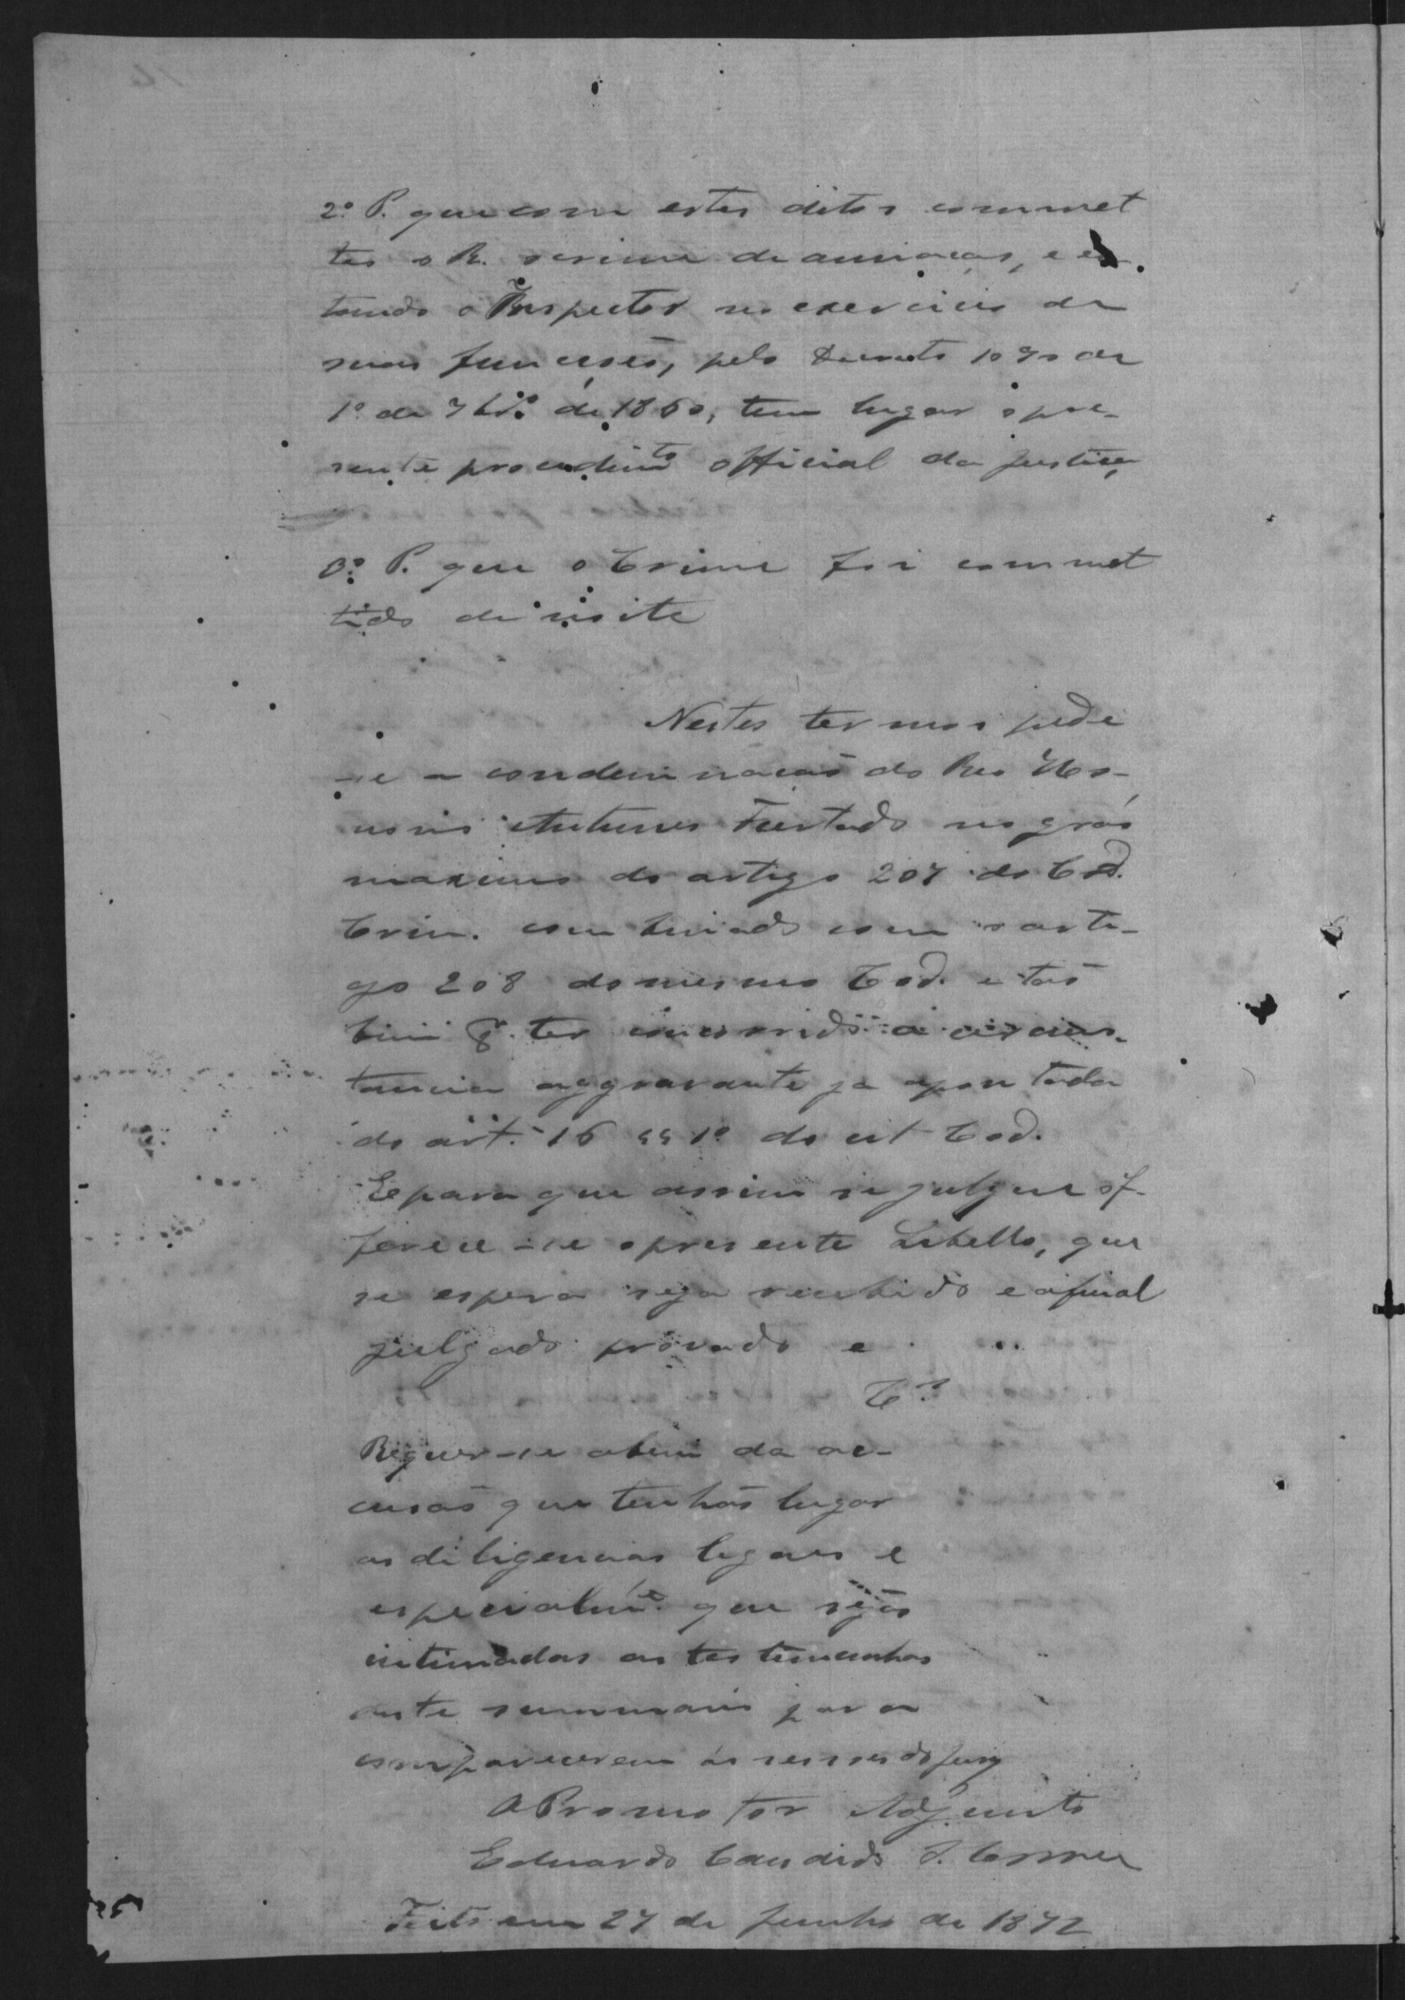 2.º P. que com estes ditos commet
teo o R. o crime de ameaças, e es
tando o Inspector no exercicio de
suas funcções, pelo Decreto 1090 de
1º de 7br.º de 1860, tem lugar o pre-
sente procedimto official da justiça
3.º P. que o Crime foi commet
tido de noite
Nestes termos pede
-se a condemnação do Reo Ho-
norio Antunes Furtado no gráo
maximo do artigo 207 do Cod.
Crim. combinado com o arti-
go 208 do mesmo Cod. e tão
bem pr ter concorrido a circuns-
tancia aggravante ja apontada
do art. 16 §§ 1º do cit Cod.
E para que assim se julgue of-
ferece-se o presente Libello, que
se espera seja recebido e afinal
julgado provado e
C.s
Requer-se a bem da ac-
cusão que tenhão lugar
as diligencias legaes e
especialmte que sejão
intimadas as testemunhas
deste summario para
comparecerem ás sessões do jury
O Promotor Adjunto
Eduardo Candido S. Correa
Feito em 27 de Junho de 1872